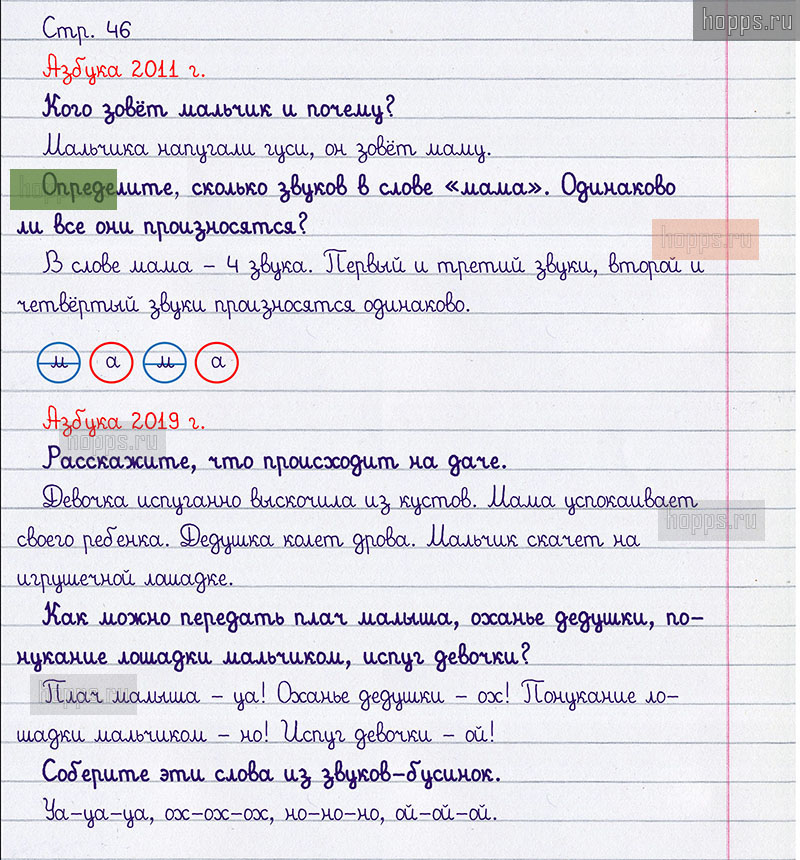 hopps.ru
Стр. 46
Азбука 2011 г.
Кого зовёт мальчик и почему?
Мальчика напугали гуси, он зовёт маму.
hopps.ru
Определите, сколько звуков в слове «мама». Одинаково
ли все они произносятся?
hopps.ru
В слове мама – 4 звука. Первый и третий звуки, второй и
четвёртый звуки произносятся одинаково.
м а м а
Азбука 2019 г.
hopps.ru
Расскажите, что происходит на даче.
Девочка испуганно выскочила из кустов. Мама успокаивает
hopps.ru
своего ребенка. Дедушка колет дрова. Мальчик скачет на
игрушечной лошадке.
Как можно передать плач малыша, оханье дедушки, по-
нукание лошадки мальчиком, испуг девочки?
hopps.ru
Плач малыша – уа! Оханье дедушки – ох! Понукание ло-
шадки мальчиком – но! Испуг девочки – ой!
Соберите эти слова из звуков-бусинок.
Уа-уа-уа, ох-ох-ох, но-но-но, ой-ой-ой.